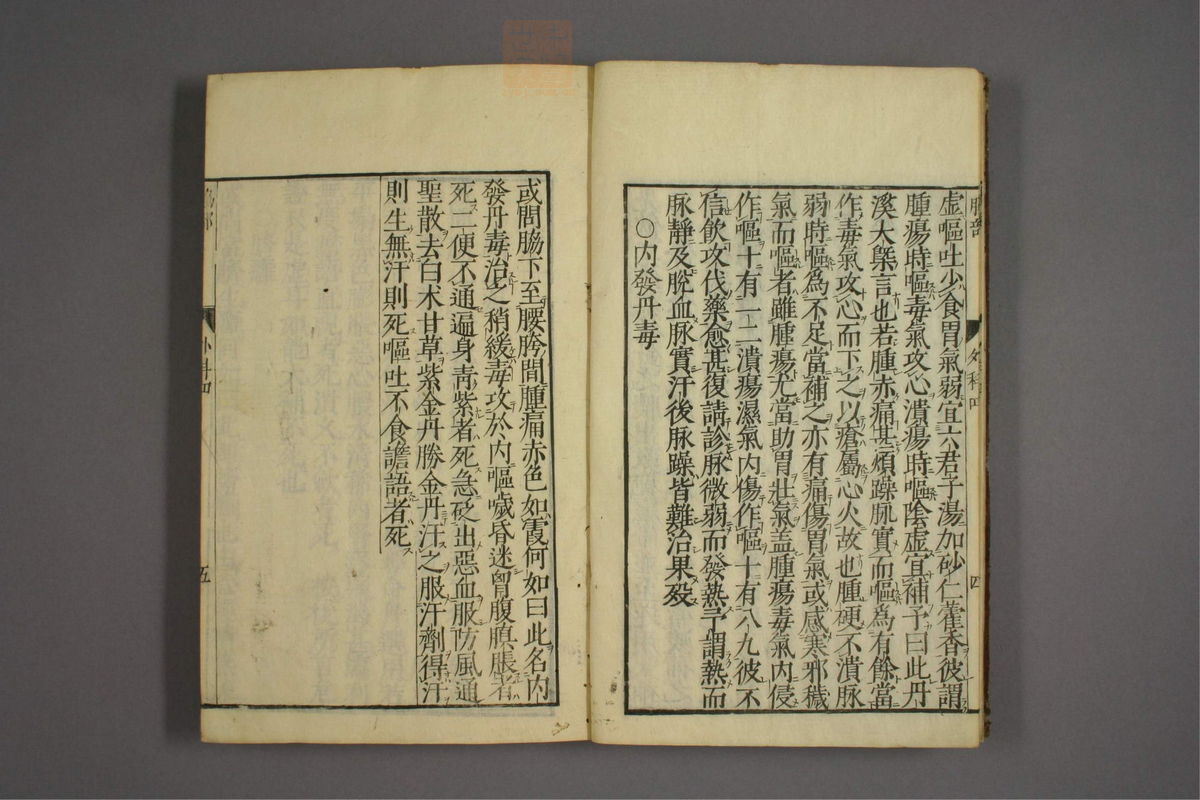 虛嘔吐少食胃氣弱宜六君子湯加砂仁藿香彼謂
腫瘍時嘔毒氣攻心潰瘍時嘔陰虛宜補予曰此丹
溪大槩言也若腫赤痛甚煩躁脉實而嘔爲有餘當
作毒氣攻心而下之以瘡屬心火故也腫硬不潰脉
弱時嘔爲不足當補之亦有痛傷胃氣或感寒邪穢
氣而嘔者雖腫瘍尤當助胃壯氣盖腫瘍毒氣内侵
作嘔十有一二潰瘍濕氣内傷作嘔十有八九彼不
信飲攻伐藥愈甚復請診脉微弱而發熱予謂熱而
脉靜及脫血脉實汗後脉躁皆難治果歿
○内發丹毒
外科四
四
或問脇下至腰胯間腫痛赤色如霞何如曰此名内
發丹毒治之稍緩毒攻於内嘔噦昏迷胷腹膹脹者
死二便不通遍身靑紫者死急砭出惡血服防風通
聖散去白术甘草紫金丹勝金丹汗之服汗劑得汗
則生無汗則死嘔吐不食譫語者死
外科四
五